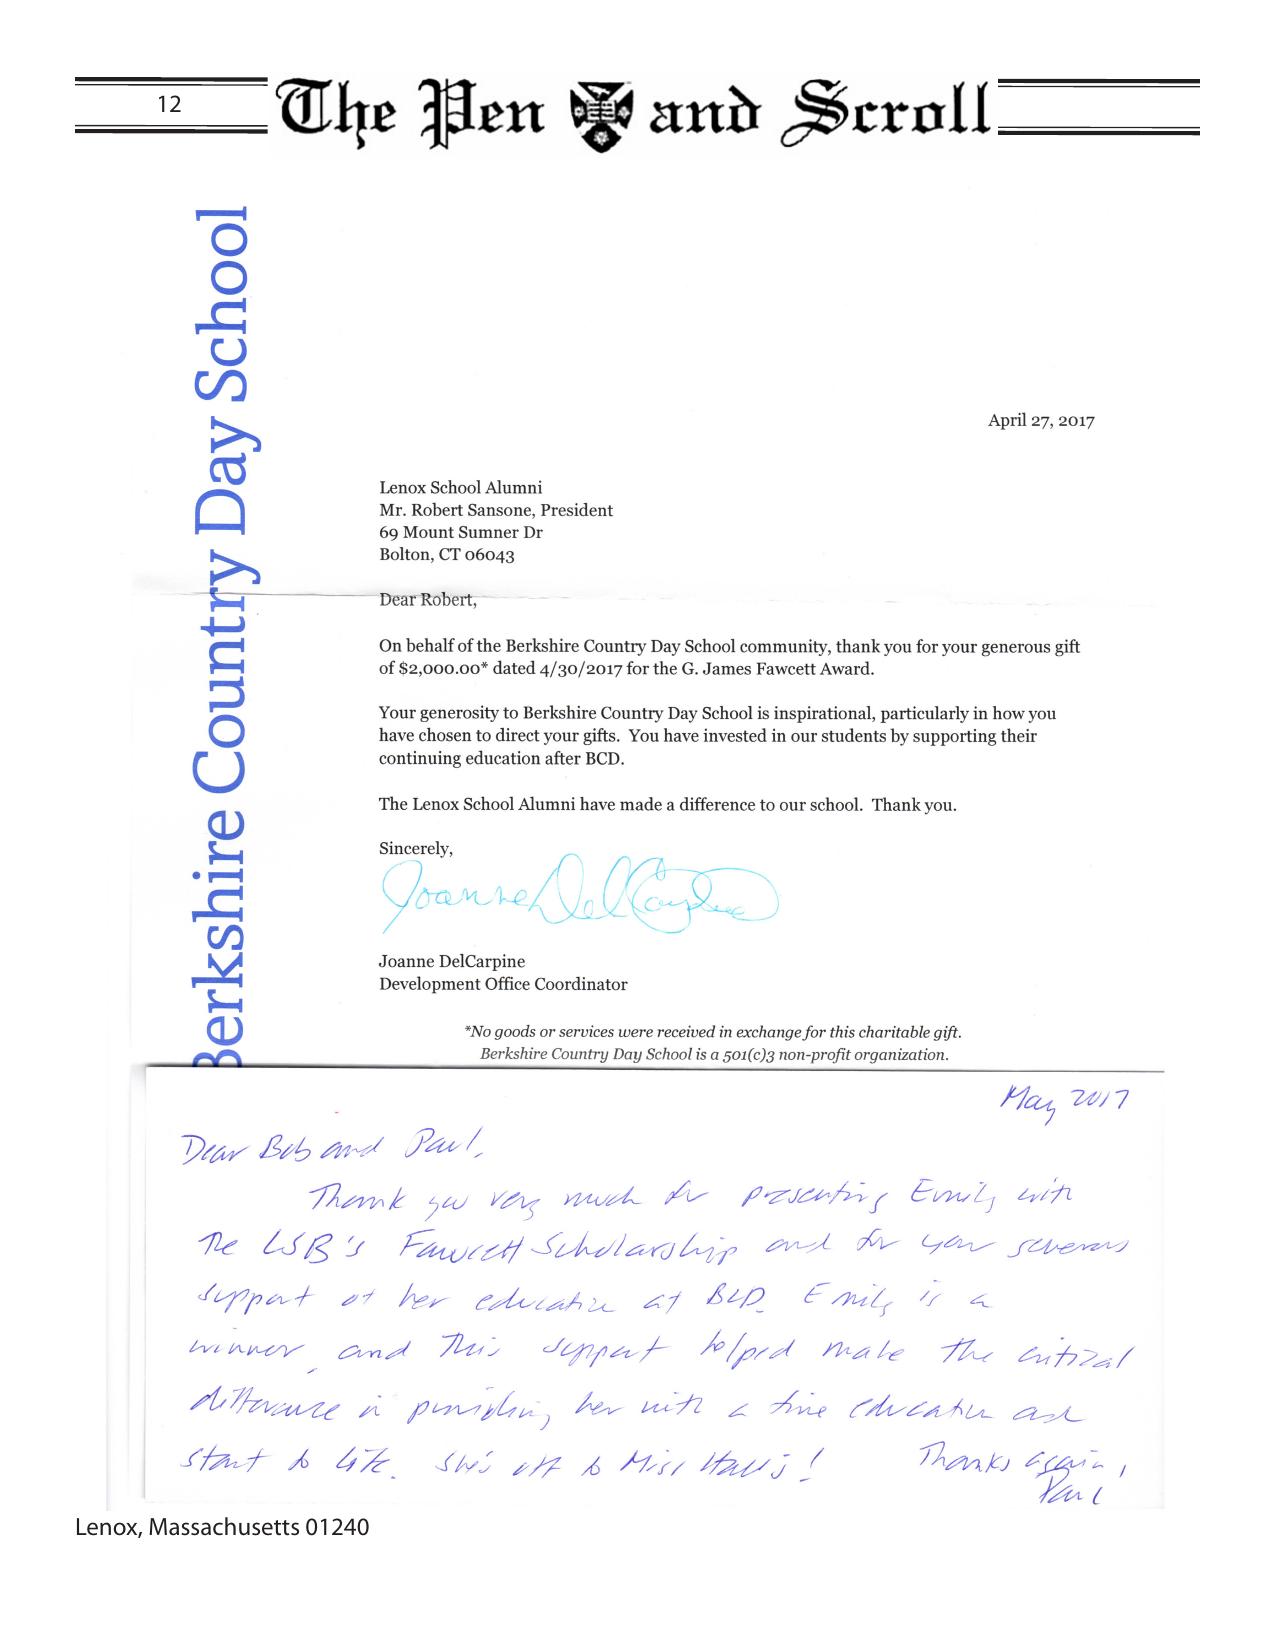 12
The Pen and Scroll
Berkshire Country Day School
April 27, 2017
Lenox School Alumni
Mr. Robert Sansone, President
69 Mount Sumner Dr
Bolton, CT 06043
Dear Robert,
On behalf of the Berkshire Country Day School community, thank you for your generous gift
of $2,000.00* dated 4/30/2017 for the G. James Fawcett Award.
Your generosity to Berkshire Country Day School is inspirational, particularly in how you
have chosen to direct your gifts. You have invested in our students by supporting their
continuing education after BCD.
The Lenox School Alumni have made a difference to our school. Thank you.
Sincerely,
Joanne DelCarpine
Joanne DelCarpine
Development Office Coordinator
*No goods or services were received in exchange for this charitable gift.
Berkshire Country Day School is a 501(c)3 non-profit organization.
May 2017
Dear Bob and Paul,
Thank you very much for presenting Emily with
the LSB's Fawcett Scholarship and for your generous
support of her education at BCD. Emily is a
winner, and this support helped make the critical
difference in providing her with a fine education and
start to life. She's off to Miss Hall's! Thanks again,
Paul
Lenox, Massachusetts 01240